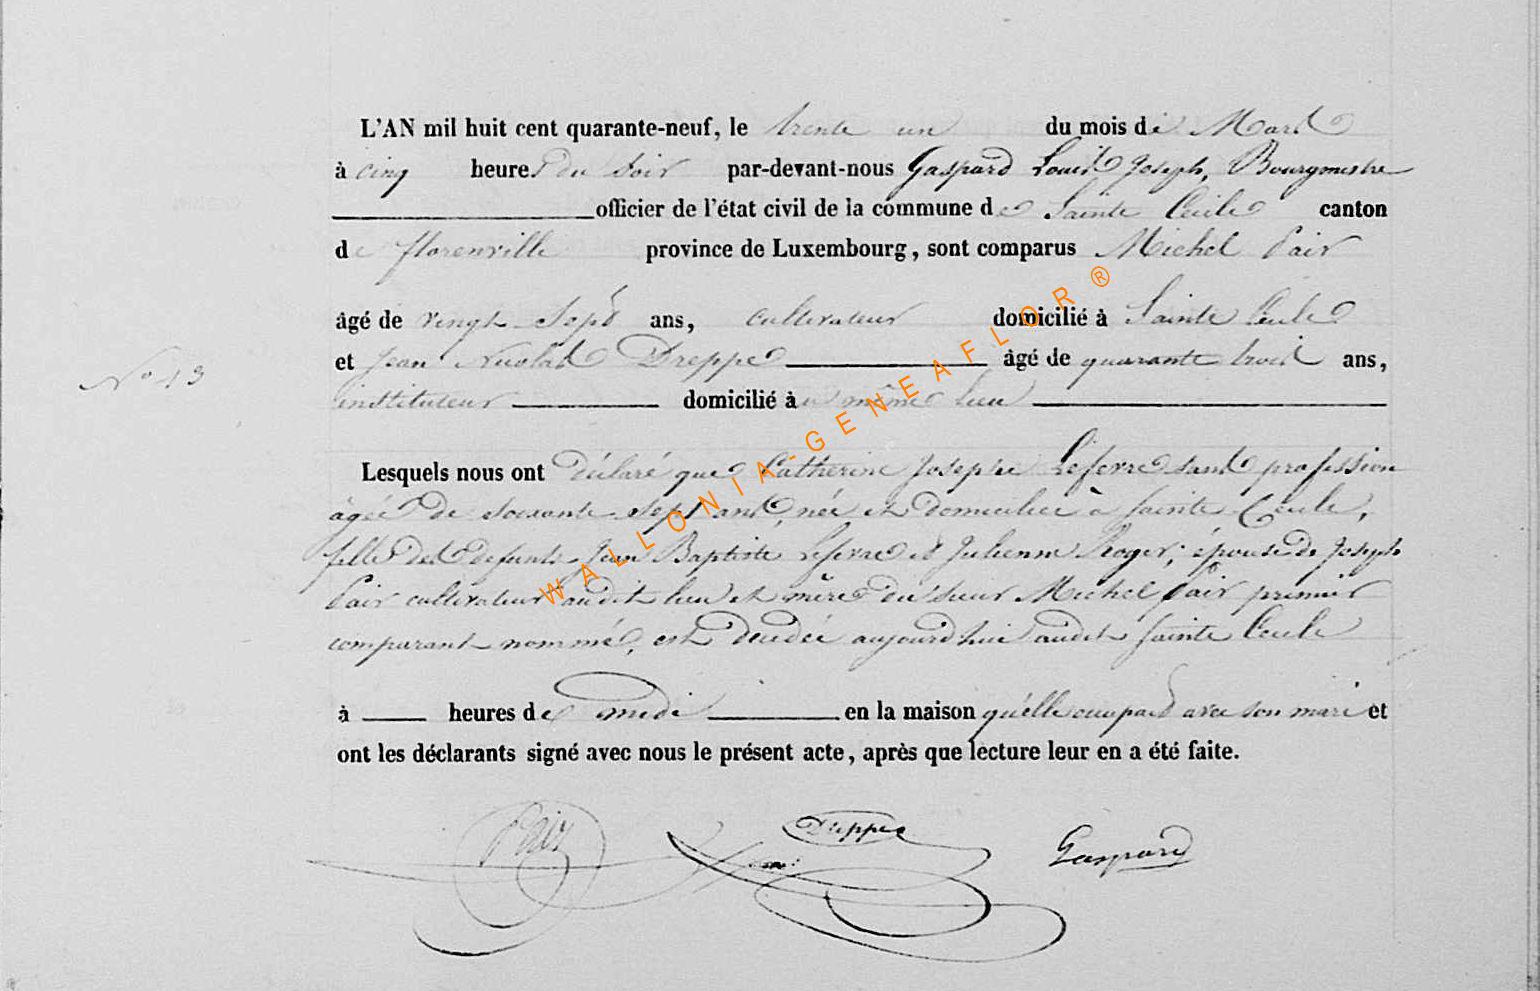 L'AN mil huit cent quarante-neuf, le trente un du mois de Mars
à cinq heures du soir par-devant-nous Gaspard Louis Joseph, Bourgmestre
officier de l'état civil de la commune de Sainte Cécile canton
de florenville province de Luxembourg, sont comparus Michel Pair
âgé de vingt Sept ans, cultivateur domicilié à Sainte Cécile
et Jean Nicolas Dreppe âgé de quarante trois ans,
No 13
instituteur domicilié au même lieu
Lesquels nous ont déclaré que Catherine Josephe Lefevre sans profession
âgée de soixante sept ans, née et domiciliée à Sainte Cécile,
fille des defunts Jean Baptiste Lefevre et Julienne Roger; épouse de Joseph
Pair cultivateur audit lieu et mère du sieur Michel Pair premier
comparant nommé, est décédée aujourd'hui audit Sainte Cécile
à heures de midi en la maison qu'elle occupait avec son mari et
ont les déclarants signé avec nous le présent acte, après que lecture leur en a été faite.
Pair Dreppe Gaspard
WALLONIA-GENEAFLOR®